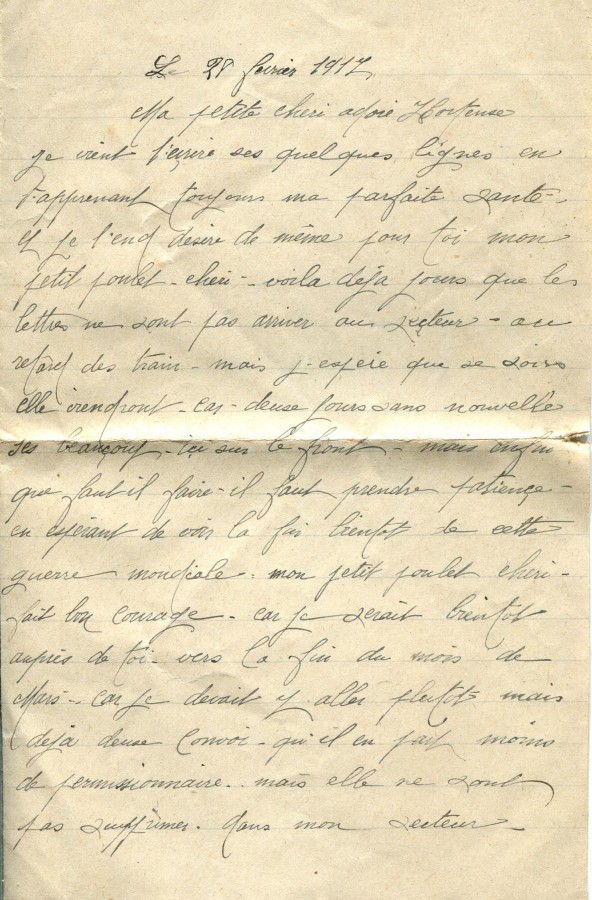 Le 28 fevrier 1917
Ma petite cheri adoré Hortense
je vient t'ecrire ses quelques lignes en
t'apprenant toujours ma parfaite sante -
et je t'end desire de même pour toi mon
petit poulet - cheri - voila déja jours que les
lettres ne sont pas arriver au secteur - au
retard des train - mais j-espére que se soirs
elle viendront - car - deuse jours sans nouvelle
ses beaucoup - ici sur le front - mais enfin
que faut il faire - il faut prendre patience -
en espérant de voir la fin bientot de cette
guerre mondiale - mon petit poulet cheri -
fait bon courage - car je serait bientot
auprès de toi - vers la fin du mois de
Mars - car je devait y aller plutot mais
déja deuse convoi - qu'il en fait moins
de permissionnaire - mais elle ne sont
pas supprimer - dans mon secteur -